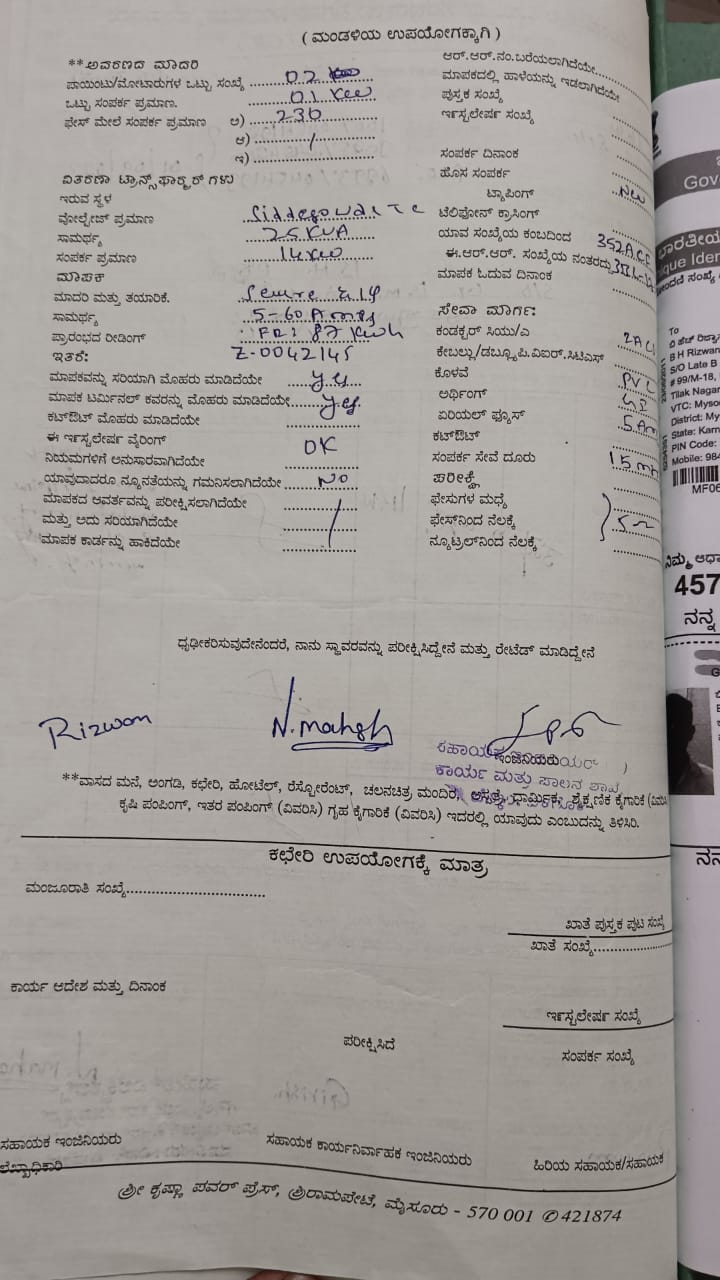 ( ಮಂಡಳಿಯ ಉಪಯೋಗಕ್ಕಾಗಿ )
**ಆವರಣದ ಮಾದರಿ
ಪಾಯಿಂಟು/ಮೋಟಾರುಗಳ ಒಟ್ಟು ಸಂಖ್ಯೆ ......02
ಒಟ್ಟು ಸಂಪರ್ಕ ಪ್ರಮಾಣ. ......01 KW
ಫೇಸ್ ಮೇಲೆ ಸಂಪರ್ಕ ಪ್ರಮಾಣ ಅ)......230
ಆ)......
ಇ)......
ವಿತರಣಾ ಟ್ರಾನ್ಸ್‌ಫಾರ್ಮರ್ ಗಳು
ಇರುವ ಸ್ಥಳ
ವೋಲ್ಟೇಜ್ ಪ್ರಮಾಣ Siddegowda TC
ಸಾಮರ್ಥ್ಯ 25 KVA
ಸಂಪರ್ಕ ಪ್ರಮಾಣ 14 KW
ಮಾಪಕ
ಮಾದರಿ ಮತ್ತು ತಯಾರಿಕೆ.
ಸಾಮರ್ಥ್ಯ 5-60 Amps
ಪ್ರಾರಂಭದ ರೀಡಿಂಗ್ FR: 87 Kwh
ಇತರೆ: Z-0042145
ಮಾಪಕವನ್ನು ಸರಿಯಾಗಿ ಮೊಹರು ಮಾಡಿದೆಯೇ yes
ಮಾಪಕ ಟರ್ಮಿನಲ್ ಕವರನ್ನು ಮೊಹರು ಮಾಡಿದೆಯೇ yes
ಕಟ್‌ಔಟ್ ಮೊಹರು ಮಾಡಿದೆಯೇ
ಈ ಇನ್‌ಸ್ಟಲೇಷನ್ ವೈರಿಂಗ್ OK
ನಿಯಮಗಳಿಗೆ ಅನುಸಾರವಾಗಿದೆಯೇ
ಯಾವುದಾದರೂ ನ್ಯೂನತೆಯನ್ನು ಗಮನಿಸಲಾಗಿದೆಯೇ No
ಮಾಪಕದ ಆವರ್ತವನ್ನು ಪರೀಕ್ಷಿಸಲಾಗಿದೆಯೇ
ಮತ್ತು ಅದು ಸರಿಯಾಗಿದೆಯೇ
ಮಾಪಕ ಕಾರ್ಡನ್ನು ಹಾಕಿದೆಯೇ
ಆರ್.ಆರ್.ನಂ.ಬರೆಯಲಾಗಿದೆಯೇ
ಮಾಪಕದಲ್ಲಿ ಹಾಳೆಯನ್ನು ಇಡಲಾಗಿದೆಯೇ
ಪುಸ್ತಕ ಸಂಖ್ಯೆ
ಇನ್‌ಸ್ಟಲೇಷನ್ ಸಂಖ್ಯೆ
ಸಂಪರ್ಕ ದಿನಾಂಕ
ಹೊಸ ಸಂಪರ್ಕ
ಟ್ಯಾಪಿಂಗ್ New
ಟೆಲಿಫೋನ್ ಕ್ರಾಸಿಂಗ್
ಯಾವ ಸಂಖ್ಯೆಯ ಕಂಬದಿಂದ
ಈ.ಆರ್.ಆರ್. ಸಂಖ್ಯೆಯ ನಂತರದ್ದು
ಮಾಪಕ ಓದುವ ದಿನಾಂಕ
ಸೇವಾ ಮಾರ್ಗ:
ಕಂಡಕ್ಟರ್ ಸಿಯು/ಎ
ಕೇಬಲ್ಲು/ಡಬ್ಲ್ಯೂಪಿ.ವಿಐಆರ್.ಸಿಟಿಎಸ್
ಕೊಳವೆ PVC
ಅರ್ಥಿಂಗ್ GI
ಏರಿಯಲ್ ಫ್ಯೂಸ್ 5 Am
ಕಟ್‌ಔಟ್
ಸಂಪರ್ಕ ಸೇವೆ ದೂರು 15 m
ಪರೀಕ್ಷೆ
ಫೇಸುಗಳ ಮಧ್ಯೆ
ಫೇಸ್‌ನಿಂದ ನೆಲಕ್ಕೆ
ನ್ಯೂಟ್ರಲ್‌ನಿಂದ ನೆಲಕ್ಕೆ
ಧೃಢೀಕರಿಸುವುದೇನೆಂದರೆ, ನಾನು ಸ್ಥಾವರವನ್ನು ಪರೀಕ್ಷಿಸಿದ್ದೇನೆ ಮತ್ತು ರೇಟೆಡ್ ಮಾಡಿದ್ದೇನೆ
Rizwan N. mahesh
ಸಹಾಯಕ ಇಂಜಿನಿಯರು
ಕಾರ್ಯ ಮತ್ತು ಪಾಲನ
**ವಾಸದ ಮನೆ, ಅಂಗಡಿ, ಕಛೇರಿ, ಹೋಟೆಲ್, ರೆಸ್ಟೋರೆಂಟ್, ಚಲನಚಿತ್ರ ಮಂದಿರ, ಆಸ್ಪತ್ರೆ, ಧಾರ್ಮಿಕ, ಶೈಕ್ಷಣಿಕ ಕೈಗಾರಿಕೆ
ಕೃಷಿ ಪಂಪಿಂಗ್, ಇತರ ಪಂಪಿಂಗ್ (ವಿವರಿಸಿ) ಗೃಹ ಕೈಗಾರಿಕೆ (ವಿವರಿಸಿ) ಇದರಲ್ಲಿ ಯಾವುದು ಎಂಬುದನ್ನು ತಿಳಿಸಿರಿ.
ಕಛೇರಿ ಉಪಯೋಗಕ್ಕೆ ಮಾತ್ರ
ಮಂಜೂರಾತಿ ಸಂಖ್ಯೆ..............................
ಖಾತೆ ಪುಸ್ತಕ ಪುಟ ಸಂಖ್ಯೆ
ಖಾತೆ ಸಂಖ್ಯೆ..................
ಕಾರ್ಯ ಆದೇಶ ಮತ್ತು ದಿನಾಂಕ
ಇನ್‌ಸ್ಟಲೇಷನ್ ಸಂಖ್ಯೆ
ಪರೀಕ್ಷಿಸಿದೆ
ಸಂಪರ್ಕ ಸಂಖ್ಯೆ
ಸಹಾಯಕ ಇಂಜಿನಿಯರು
ಲೆಖ್ಖಾಧಿಕಾರಿ
ಸಹಾಯಕ ಕಾರ್ಯನಿರ್ವಾಹಕ ಇಂಜಿನಿಯರು
ಹಿರಿಯ ಸಹಾಯಕ/ಸಹಾಯಕ
ಶ್ರೀ ಕೃಷ್ಣಾ ಪವರ್ ಪ್ರೆಸ್, ಶ್ರೀರಾಮಪೇಟೆ, ಮೈಸೂರು - 570 001 ✆421874
Gov
ಭಾರತೀಯ
ique Iden
To
B H Rizwan
S/O Late B
# 99/M-18,
Tilak Nagar
VTC: Myso
District: My
State: Karn
PIN Code:
Mobile: 984
MF06
ನಿಮ್ಮ ಆಧಾ
457
ನನ್ನ